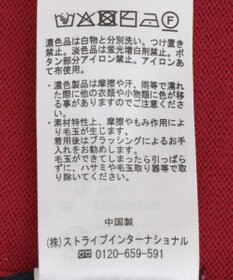 濃色品は白物と分別洗い。つけ置き
禁止。淡色品は蛍光増白剤禁止。ボ
タン部分アイロン禁止。アイロンあ
て布使用。
・濃色製品は摩擦や汗、雨等で濡れ
た際に他の衣類や小物類に色が移
る事がありますのでご注意くださ
い。
・素材特性上、摩擦やもみ作用によ
り毛玉が発生します。
着用後はブラッシングによるお手
入れをお勧めします。
毛玉ができてしまったら引っぱら
ずに、ハサミや毛玉取り器等で取
り除いてください。
中国製
(株)ストライプインターナショナル
☏ 0120-659-591